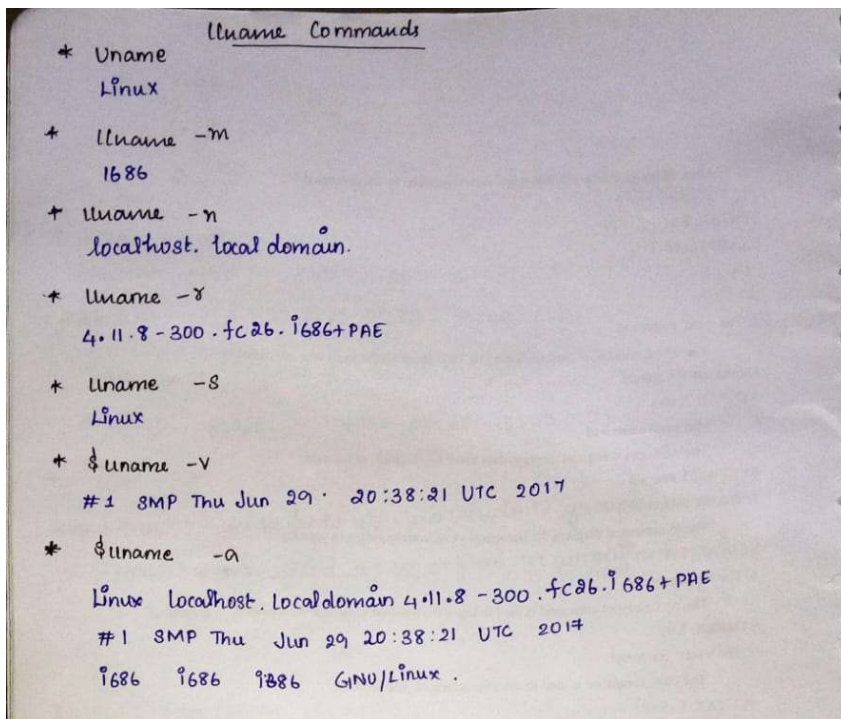 Uname Commands
* Uname
Linux
* Uname -m
i686
* Uname -n
localhost. local domain.
* Uname -r
4.11.8-300.fc26.i686+PAE
* Uname -S
Linux
* $ uname -v
#1 SMP Thu Jun 29. 20:38:21 UTC 2017
* $ uname -a
Linux localhost. localdomain 4.11.8-300.fc26.i686+PAE
#1 SMP Thu Jun 29 20:38:21 UTC 2017
i686 i686 i386 GNU/Linux.